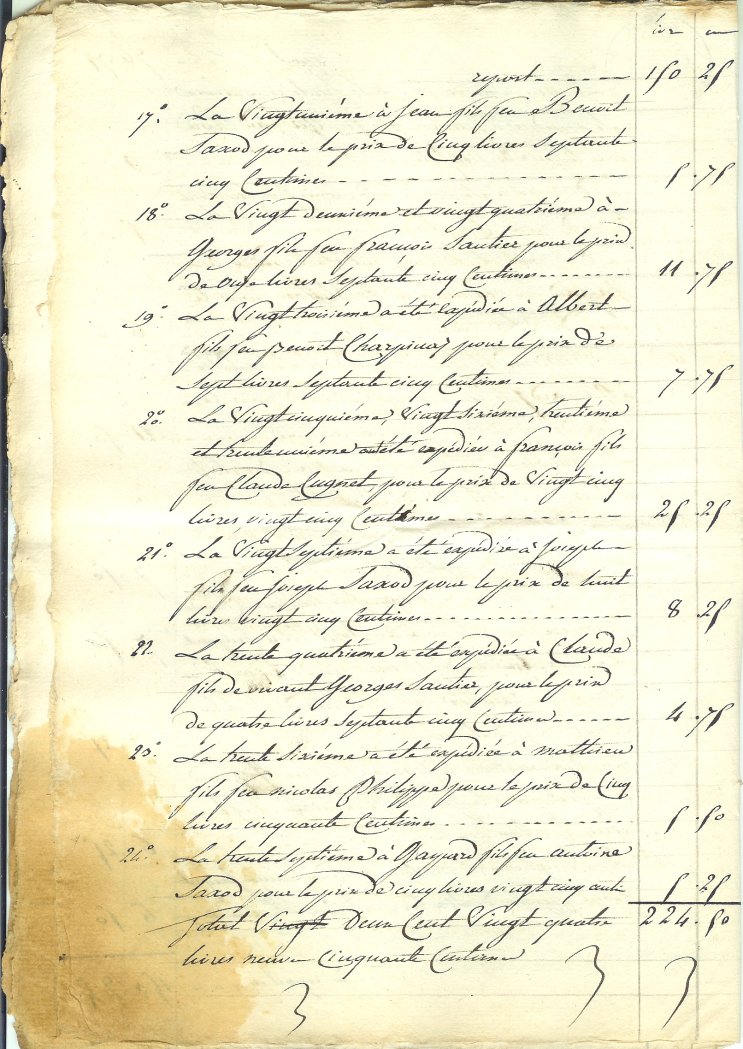 livr cm
report - - - - - 150 25
17° La Vingtuniéme à jean fils feu Benoit
Saxod pour le prix de Cinq livres Septante
cinq Centimes - - - - - - - - - - 5 . 75
18° La Vingt deuxiéme et vingt quatriéme à -
Georges fils feu françois Sautier pour le prix
de onze livres Septante cinq Centimes - - - - - - 11 . 75
19° La Vingt troisiéme a été expédiée à Albert
fils feu Benoit Charpinaz pour le prix de
sept livres septante cinq Centimes - - - - - - - 7 . 75
20. La Vingt cinquiéme, Vingt sixiéme, trentiéme
et trente uniéme a été expédiée à françois fils
feu Claude Cugnet, pour le prix de Vingt cinq
livres vingt cinq Centimes - - - - - - - - 25 . 25
21° La Vingt Septiéme a été expédiée à joseph
fils feu joseph Saxod pour le prix de huit
livres vingt cinq Centimes - - - - - - - - - 8 . 25
22. La trente quatriéme a été expédiée à Claude
fils de vivant Georges Sautier, pour le prix
de quatre livres Septante cinq Centimes - - - - - 4 . 75
23° La trente sixiéme a été expédiée à mathieu
fils feu nicolas Philippe pour le prix de Cinq
livres cinquante Centime - - - - - - - - - 5 . 50
24° La trente Septiéme à Gaspard fils feu antoine
Saxod pour le prix de cinq livres vingt cinq cent 5 . 25
total Vingt Deux Cent Vingt quatre 224 . 50
livres neuve Cinquante Centime